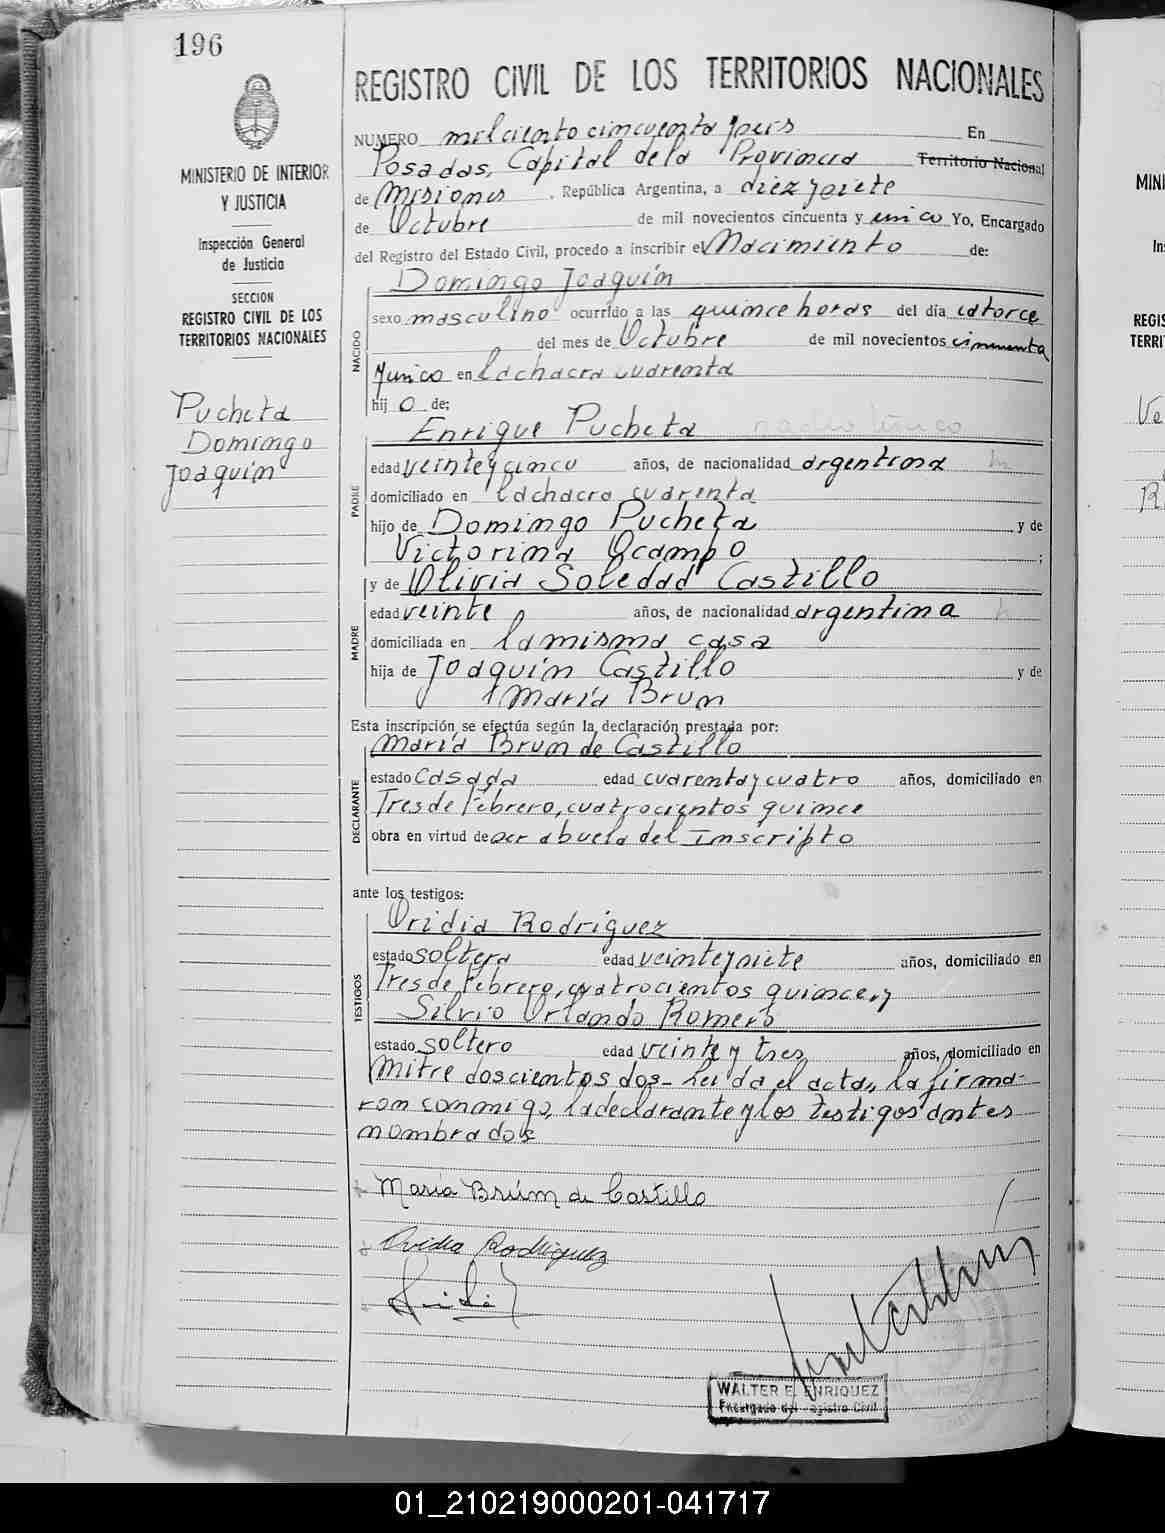 196
MINISTERIO DE INTERIOR
Y JUSTICIA
Inspección General
de Justicia
SECCION
REGISTRO CIVIL DE LOS
TERRITORIOS NACIONALES
Pucheta
Domingo
Joaquín
REGISTRO CIVIL DE LOS TERRITORIOS NACIONALES
NUMERO mil ciento cincuenta y seis En
Posadas, Capital de la Provincia Territorio Nacional
de Misiones, República Argentina, a diez y siete
de Octubre de mil novecientos cincuenta y unico Yo, Encargado
del Registro del Estado Civil, procedo a inscribir el Nacimiento de:
NACIDO
Domingo Joaquín
sexo masculino ocurrido a las quince horas del día catorce
del mes de Octubre de mil novecientos cincuenta
y unico en la chacra cuarenta
hij o de;
PADRE
Enrique Pucheta
edad veinte y cinco años, de nacionalidad argentina
domiciliado en la chacra cuarenta
hijo de Domingo Pucheta y de
Victorina Ocampo ;
MADRE
y de Olivia Soledad Castillo
edad veinte años, de nacionalidad argentina
domiciliada en la misma casa
hija de Joaquín Castillo y de
María Brum
Esta inscripción se efectúa según la declaración prestada por:
DECLARANTE
María Brum de Castillo
estado Casada edad cuarenta y cuatro años, domiciliado en
Tres de Febrero, cuatrocientos quince
obra en virtud de ser abuela del Inscripto
ante los testigos:
TESTIGOS
Oridia Rodríguez
estado soltera edad veinte y siete años, domiciliado en
Tres de Febrero, cuatrocientos quince, y
Silvio Orlando Romero
estado soltero edad veinte y tres años, domiciliado en
Mitre doscientos dos - Leida el acta, la firma-
ron conmigo, la declarante y los testigos antes
nombrados
Maria Brum de Castillo
Ovidia Rodriguez
WALTER E. ENRIQUEZ
Encargado del Registro Civil
MINI
REGIS
TERRI
01_210219000201-041717